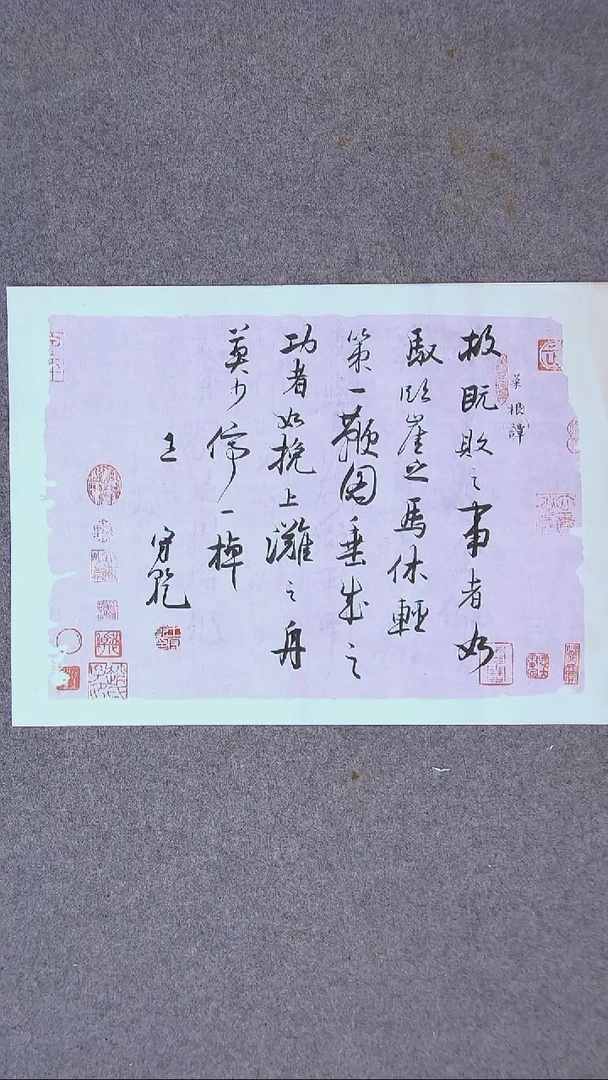 菜根譚
救既敗之事者如
馭臨崖之馬休輕
策一鞭圖垂成之
功者如挽上灘之舟
莫少停一棹
王守乾